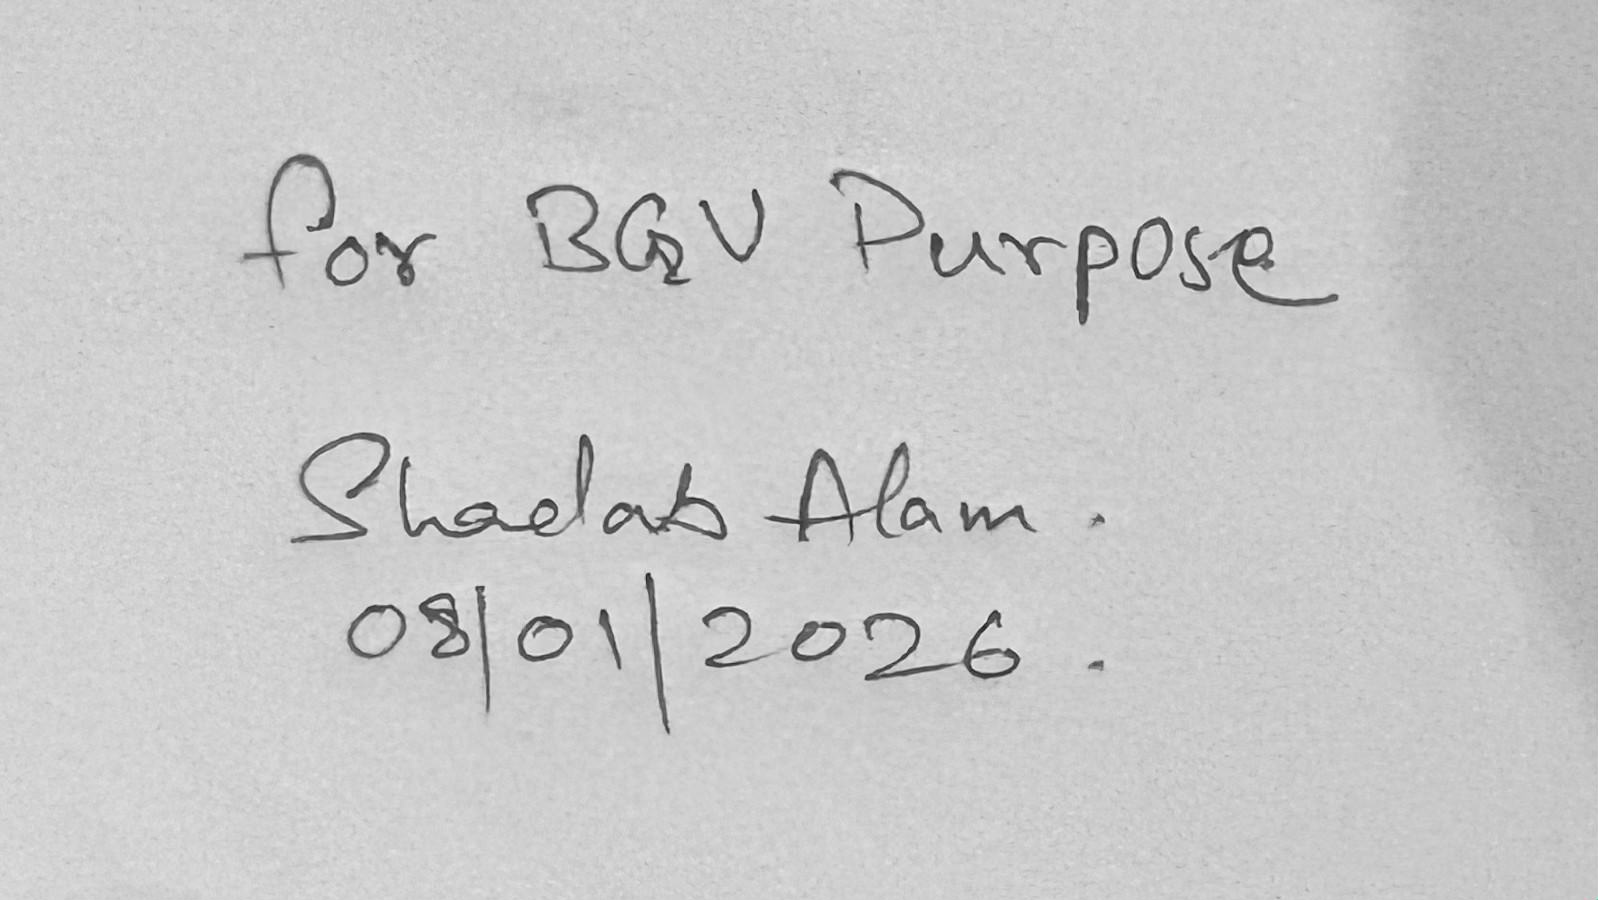 for BGV Purpose
Shadab Alam.
08/01/2026.